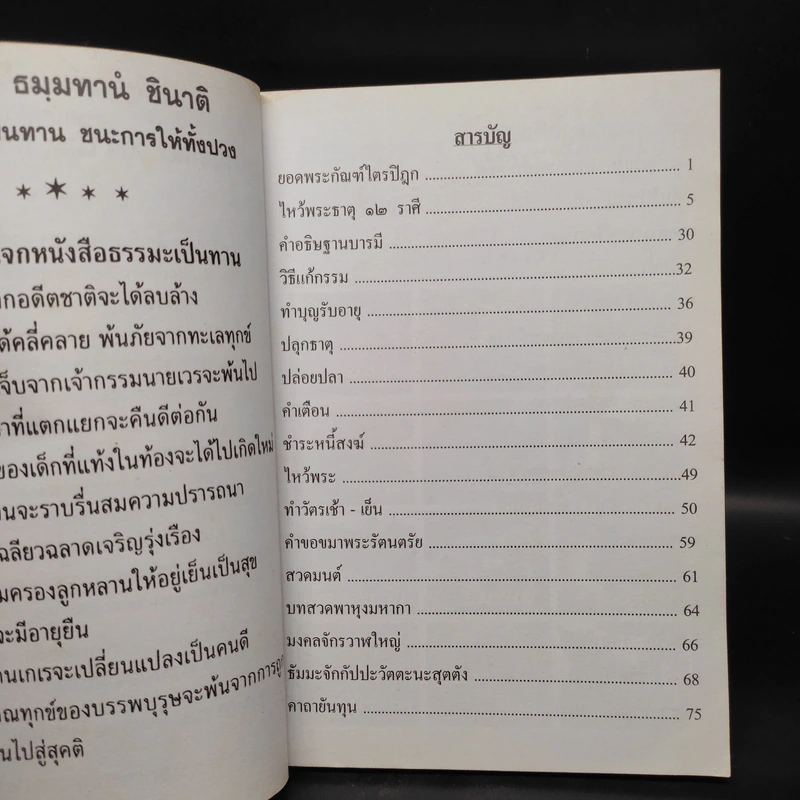 ธมฺมทานํ ชินาติ
ทาน ชนะการให้ทั้งปวง
หนังสือธรรมะเป็นทาน
อดีตชาติจะได้ลบล้าง
คลี่คลาย พ้นภัยจากทะเลทุกข์
จากเจ้ากรรมนายเวรจะพ้นไป
ที่แตกแยกจะคืนดีต่อกัน
ของเด็กที่แท้งในท้องจะได้ไปเกิดใหม่
จะราบรื่นสมความปรารถนา
เฉลียวฉลาดเจริญรุ่งเรือง
ครองลูกหลานให้อยู่เย็นเป็นสุข
จะมีอายุยืน
เกเรจะเปลี่ยนแปลงเป็นคนดี
ทุกข์ของบรรพบุรุษจะพ้นจากการ
ไปสู่สุคติ
สารบัญ
ยอดพระกัณฑ์ไตรปิฎก ........ 1
ไหว้พระธาตุ ๑๒ ราศี ........ 5
คำอธิษฐานบารมี ........ 30
วิธีแก้กรรม ........ 32
ทำบุญรับอายุ ........ 36
ปลุกธาตุ ........ 39
ปล่อยปลา ........ 40
คำเตือน ........ 41
ชำระหนี้สงฆ์ ........ 42
ไหว้พระ ........ 49
ทำวัตรเช้า - เย็น ........ 50
คำขอขมาพระรัตนตรัย ........ 59
สวดมนต์ ........ 61
บทสวดพาหุงมหากา ........ 64
มงคลจักรวาฬใหญ่ ........ 66
ธัมมะจักกัปปะวัตตะนะสุตตัง ........ 68
คาถายันทุน ........ 75